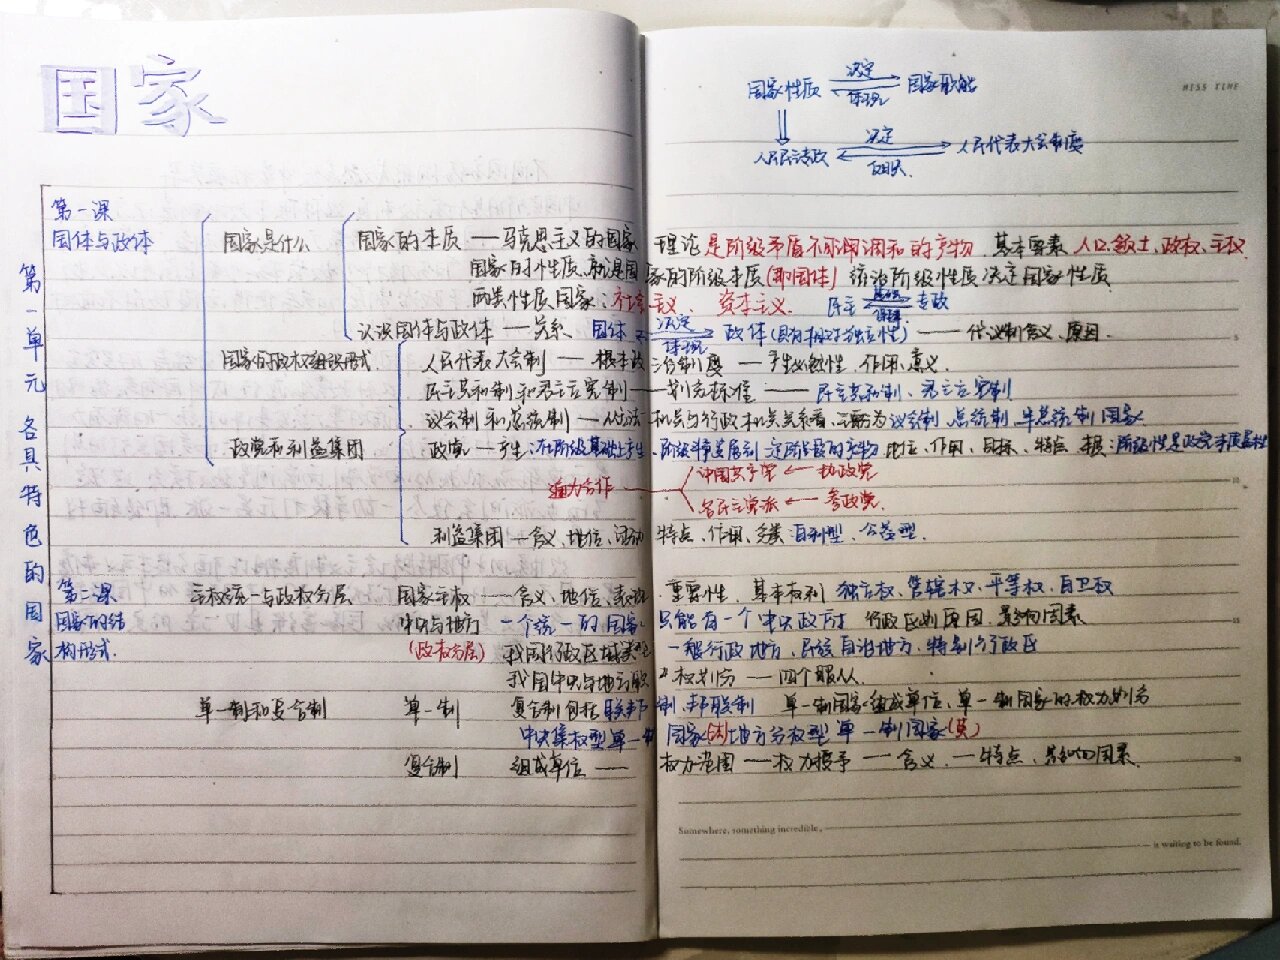 国家
MISS TIME
国家性质 决定 国家职能
体现
人民民主专政 决定 人民代表大会制度
反映
第一单元 各具特色的国家
第一课
国体与政体 国家是什么 国家的本质 — 马克思主义的国家理论 是阶级矛盾不可调和的产物 基本要素 人口、领土、政权、主权
国家的性质、就是国家的阶级本质(即国体) 统治阶级性质决定国家性质
两类性质国家: 社会主义、资本主义 民主 专政
认识国体与政体 — 关系 国体 决定 体现 政体(具有相对独立性) — 代议制含义、原因
国家的政权组织形式 人民代表大会制 — 根本政治制度 — 产生必然性、作用、意义
民主共和制和君主立宪制 — 划分标准 — 民主共和制、君主立宪制
议会制和总统制 — 从立法机关与行政机关关系看,可分为议会制、总统制、半总统制国家
政党和利益集团 政党 — 产生: 在阶级基础上产生、阶级斗争发展到一定阶段的产物 地位、作用、目标、特点
通力合作 中国共产党 ← 执政党
各民主党派 ← 参政党
利益集团 — 含义、地位、活动特点、作用、分类 自利型、公益型
第二课
国家的结构形式 主权统一与政权分层 国家主权 — 含义、地位、表现、重要性、基本权利 独立权、管辖权、平等权、自卫权
中央与地方 一个统一的国家只能有一个中央政府 行政区划原因、影响因素
(政权分层) 我国行政区域类型 一般行政地方、民族自治地方、特别行政区
我国中央与地方职权划分 — 四个服从
单一制和复合制 单一制 复合制包括联邦制、邦联制 单一制国家组成单位、单一制国家的权力划分
中央集权型单一制国家(法)地方分权型单一制国家(英)
复合制 组成单位 — 权力范围 — 权力授予 — 含义 — 特点
Somewhere, something incredible,
is waiting to be found.